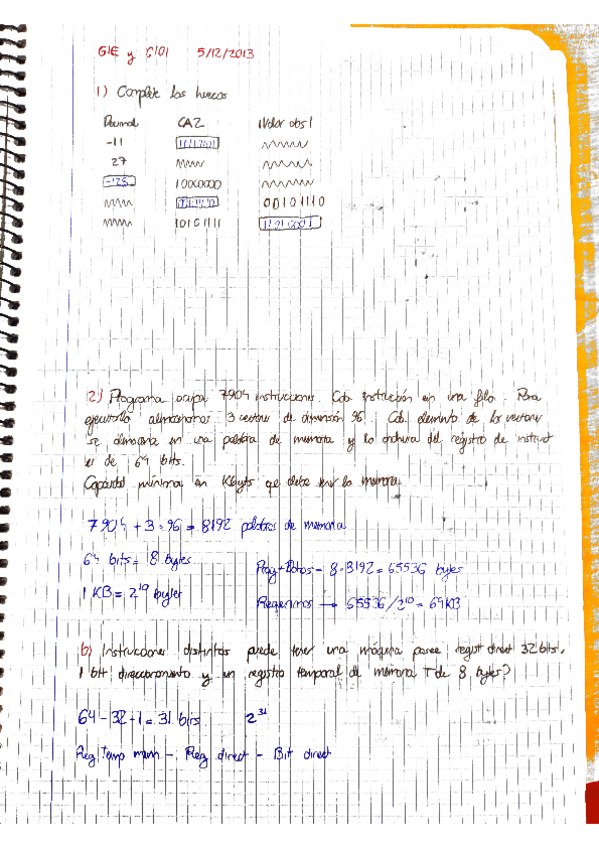 GIE y GIOI 5/12/2013
1) Complete los huecos
Decimal CA2 |Valor abs|
-11
27
-128 10000000
00101110
10101111
2) Programa ocupa 7904 instrucciones. Cada instrucción en una fila. Para
ejecutarlo almacenamos 3 vectores de dimensión 96. Cada elemento de los vectores
se almacena en una palabra de memoria y la anchura del registro de instrucc
es de 64 bits.
Capacidad mínima en Kbyts que debe tener la memoria.
7904 + 3·96 = 8192 palabras de memoria
64 bits = 8 bytes
Prog + Datos = 8·8192 = 65536 bytes
1 KB = 2^10 bytes
Requerimos → 65536/2^10 = 64KB
b) Instrucciones distintas puede tener una máquina posee regist direct 32 bits,
1 bit direccionamiento y un registro temporal de memoria T de 8 bytes?
64 - 32 - 1 = 31 bits 2^31
Reg. Temp mem - Reg direct - Bit direct